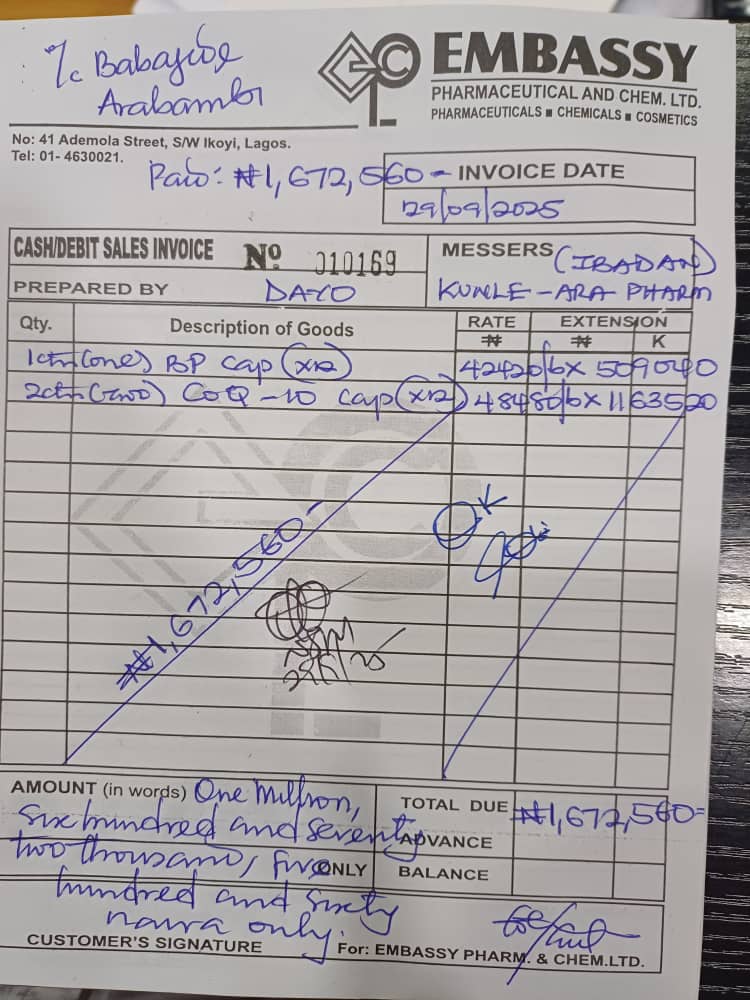 I/c Babajide
Arabambi
EMBASSY
PHARMACEUTICAL AND CHEM. LTD.
PHARMACEUTICALS ■ CHEMICALS ■ COSMETICS
No: 41 Ademola Street, S/W Ikoyi, Lagos.
Tel: 01- 4630021.
Paid: ₦1,672,560-
INVOICE DATE
29/09/2025
CASH/DEBIT SALES INVOICE No. 010169
MESSERS (IBADAN)
PREPARED BY DAYO
KUNLE-ARA PHARM
Qty. Description of Goods RATE ₦ EXTENSION ₦ K
1ctn(one) BP Cap (x12) 42420/6x 509040
2ctn(two) CoQ-10 Cap (x12) 48480/6x 1163520
OK
₦1,672,560-
AMOUNT (in words) One Million,
six hundred and seventy
two thousand, five
hundred and sixty
naira only.
ONLY
TOTAL DUE ₦1,672,560=
ADVANCE
BALANCE
CUSTOMER'S SIGNATURE
For: EMBASSY PHARM. & CHEM.LTD.